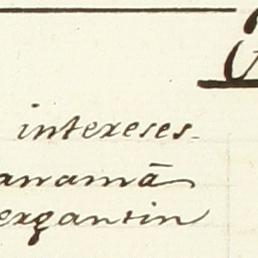 intereses.
anamá
ergantin